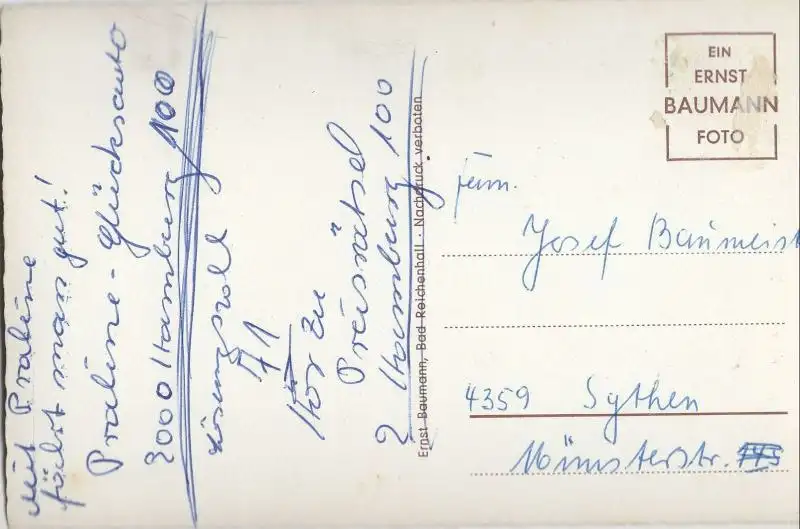 Mit Praline
fährt man gut!
Praline-Glücksauto
2000 Hamburg 100
Lösungswort
A1
Hör zu
Preisrätsel
2 Hamburg 100
Ernst Baumann, Bad Reichenhall - Nachdruck verboten
EIN
ERNST
BAUMANN
FOTO
Fam.
Josef Baumeist
4359 Sythen
Münsterstr.